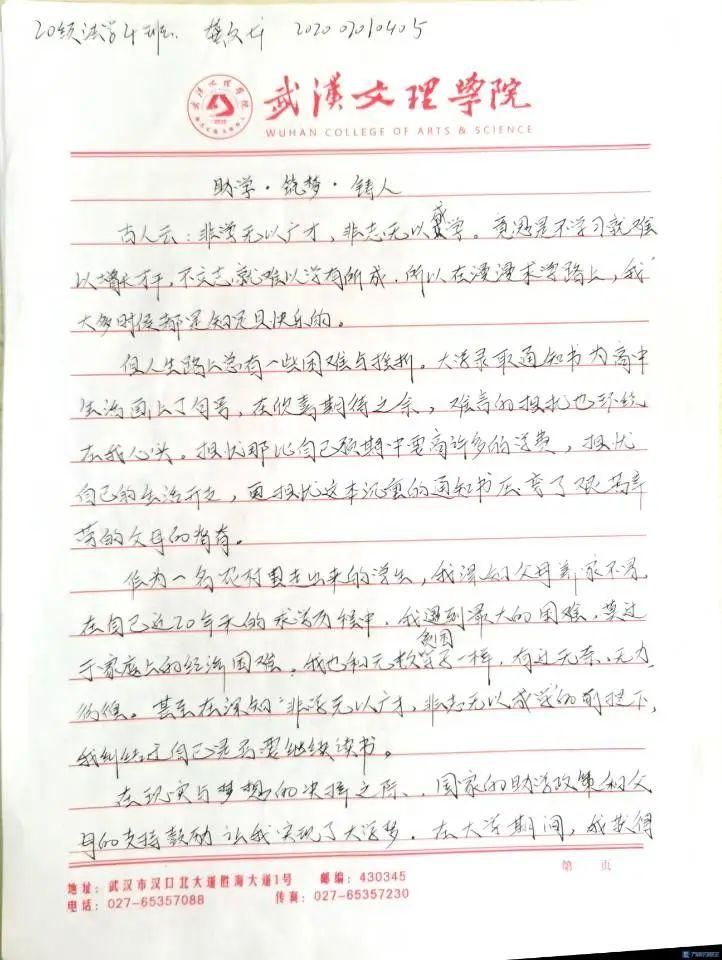 20级法学4班 龚文 202007010405
武漢文理學院
WUHAN COLLEGE OF ARTS & SCIENCE
助学·筑梦·铸人
古人云：非学无以广才，非志无以成学。意思是不学习就难
以增长才干，不立志就难以学有所成。所以在漫漫求学路上，我
大多时候都是知足且快乐的。
但人生路上总有一些困难与挫折。大学录取通知书为高中
生活画上了句号，在欣喜期待之余，难言的担忧也环绕
在我心头。担忧那比自己预期中要高许多的学费，担忧
自己的生活开支，更担忧这本沉重的通知书压弯了艰苦辛
劳的父母的脊背。
作为一名农村里走出来的学生，我深知父母养家不易，
在自己近20年来的求学历程中，我遇到最大的困难，莫过
于家庭上的经济困难。我也和无数贫困学子一样，有过无奈、无力
彷徨。甚至在深知“非学无以广才，非志无以成学”的前提下，
我纠结于自己是否要继续读书。
在现实与梦想的决择之际，国家的助学政策和父
母的支持鼓励让我实现了大学梦。在大学期间，我获得
第 页
地址：武汉市汉口北大道胜海大道1号 邮编：430345
电话：027-65357088 传真：027-65357230